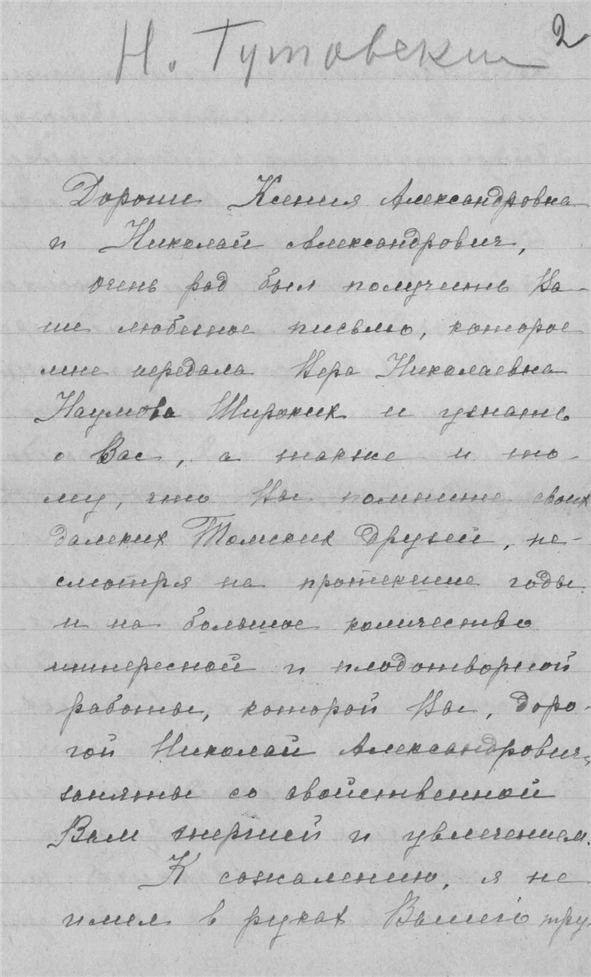 2
Н. Гутовский
Дорогие Ксения Александровна
и Николай Александрович,
очень рад был получить Ва-
ше любезное письмо, которое
мне передала Вера Николаевна
Наумова Широких и узнать
о Вас, а также и то-
му, что Вы помните своих
далеких Томских друзей, не-
смотря на протекшие годы
и на большое количество
интересной и плодотворной
работы, которой Вы, доро-
гой Николай Александрович,
заняты со свойственной
Вам энергией и увлечением.
К сожалению, я не
имел в руках Вашего тру-